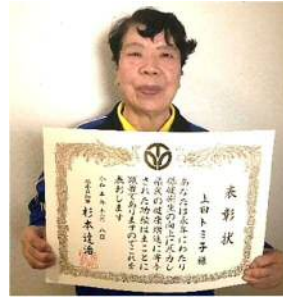 表彰状
上田トミ子様
あなたは永年にわたり
保健衛生の向上に尽力し
県民の健康増進に寄与
された功績はまことに
顕著でありますのでこれを
表彰します
令和五年十一月八日
杉本達治